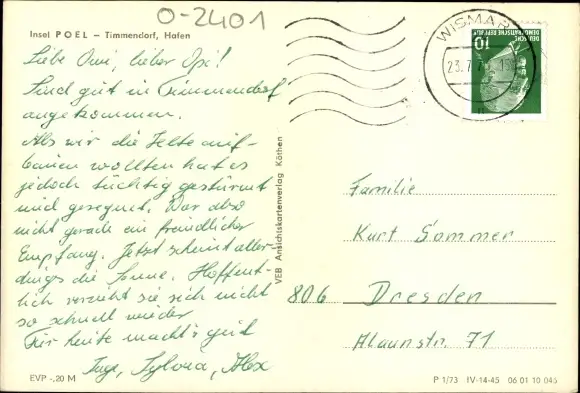 O-2401
Insel POEL – Timmendorf, Hafen
Liebe Omi, lieber Opi!
Sind gut in Timmendorf
angekommen.
Als wir die Zelte auf-
bauen wollten hat es
jedoch tüchtig gestürmt
und geregnet. War also
nicht gerade ein freundlicher
Empfang. Jetzt scheint aller-
dings die Sonne. Hoffent-
lich verzieht sie sich nicht
so schnell wieder
Für heute macht's gut
Inge, Sylvia, Alex
EVP -,20 M
VEB Ansichtskartenverlag Köthen
WISMAR
23.7.7
10
DEUTSCHE
DEMOKRATISCHE REPUBLIK
Familie
Kurt Sommer
806 Dresden
Alaunstr. 71
P 1/73 IV-14-45 06 01 10 045